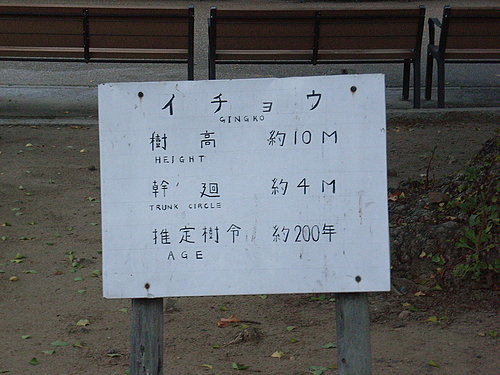 イチョウ
GINGKO
樹高 約10M
HEIGHT
幹廻 約4M
TRUNK CIRCLE
推定樹令 約200年
AGE